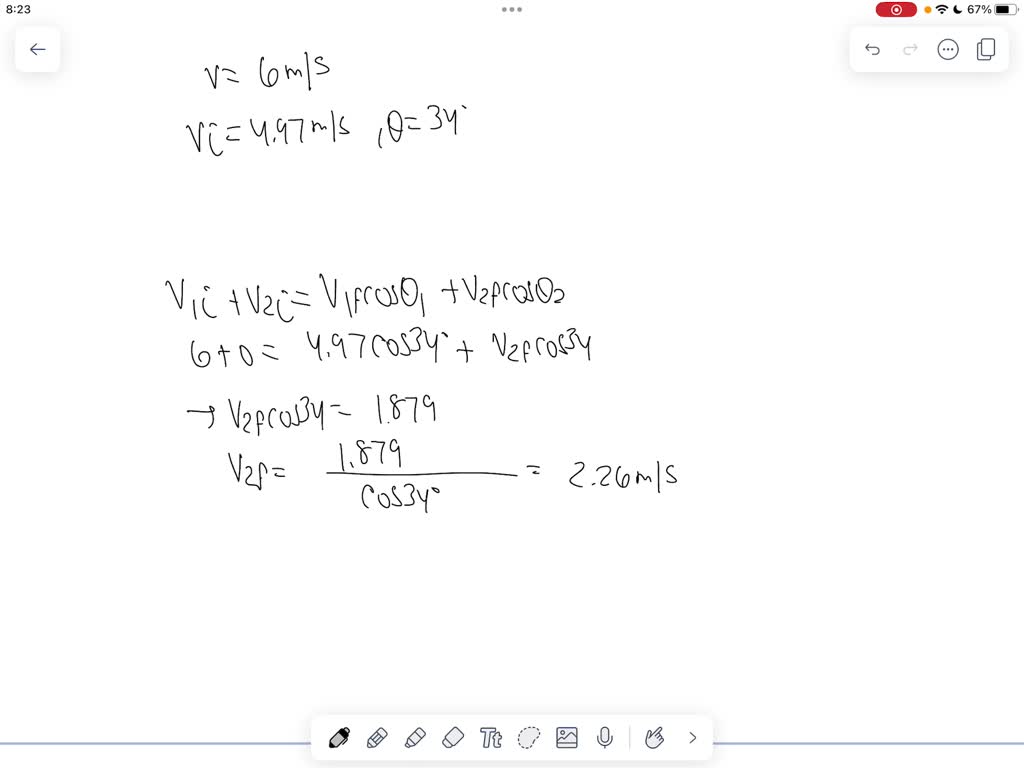 8:23
67%
v = 6 m/s
Vi = 4.97 m/s , θ = 34°
V1i + V2i = V1fcosθ1 + V2fcosθ2
6 + 0 = 4.97 cos34° + V2fcos34
→ V2fcos34 = 1.879
V2f = 1.879 / cos34° = 2.26 m/s
Tt